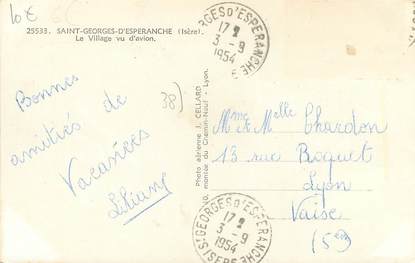 10€
25533. SAINT-GEORGES-D'ESPERANCHE (Isère).
Le Village vu d'avion.
Bonnes
amitiés de
Vacances
Liliane
38)
Photo aérienne J. CELLARD
montée du Chemin-Neuf - Lyon.
17
3-9
1954
Mme et Melle Chardon
13 rue Roquet
Lyon
Vaise
(5em)
ST GEORGES D'ESPERANCHE
17
3-9
1954
ISERE